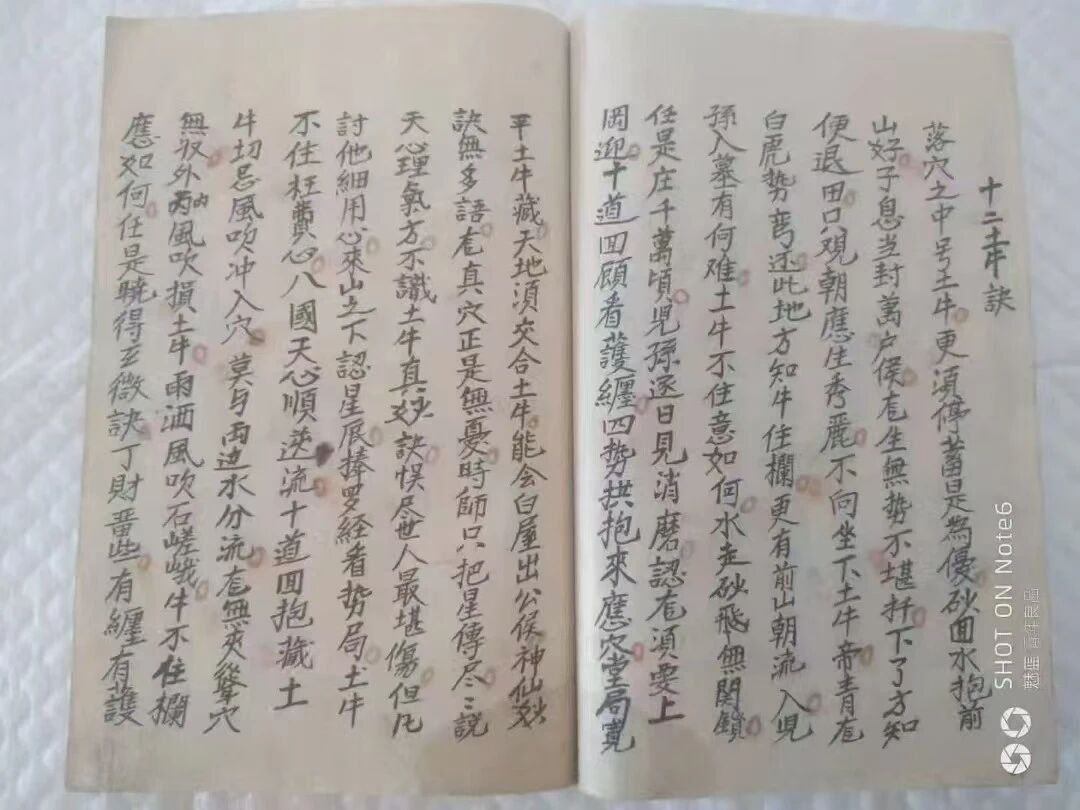 十二土牛訣
落穴之中号土牛更須停蓄是為優砂囬水抱前
山好子息当封萬户侯龙生無势不堪扦下了方知
便退田只观朝應生秀麗不向坐下土牛帝青龙
白虎势弯还此地方知牛住欄更有前山朝流入児
孫入墓有何难土牛不住意如何水走砂飛無関鎖
任是庄千萬頃児孫逐日見消磨認龙須要上
岡迎十道回顧看護纏四势拱抱來應穴堂局寬
平土牛藏天地須交合土牛能会白屋出公侯神仙妙
訣無多語龙真穴正是無憂時師只把星傳尽〻說
天心理氣方不識土牛真妙訣悮尽世人最堪傷但凡
討他細用心來山之下認星辰捧罗経看势局土牛
不住枉費心八國天心順逆流十道囬抱藏土
牛切忌風吹冲入穴莫与両边水分流龙無夾從穴
無収外納両風吹損土牛雨洒風吹石嵯峨牛不住欄
應如何任是曉得玄微訣丁財畨些有纏有護
SHOT ON Note6
魅蓝 百年良品